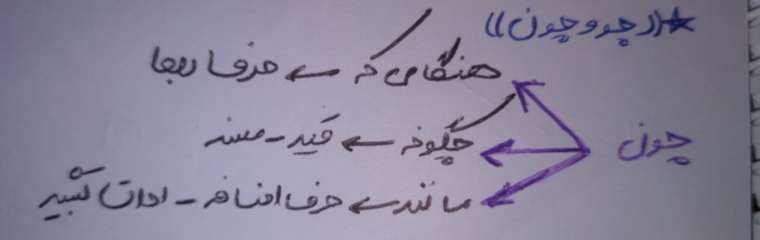 * ((چو و چون))
هنگامی که ← حرف ربط
چون چگونه ← قید - مسند
مانند ← حرف اضافه - ادات تشبیه